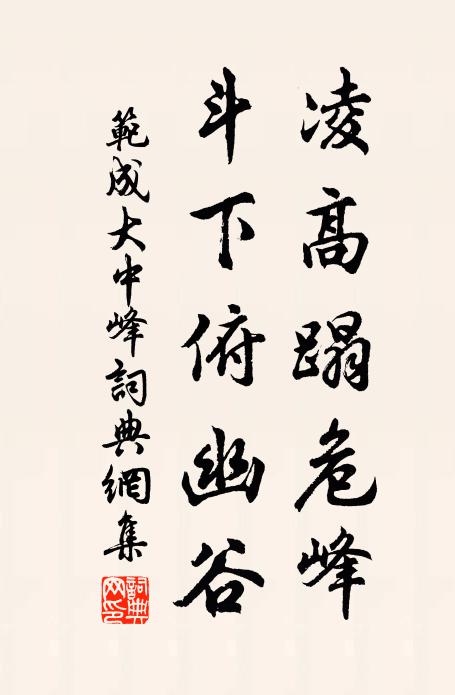 凌高蹋危峰
斗下俯幽谷
範成大中峰詞典網集
詞典网印